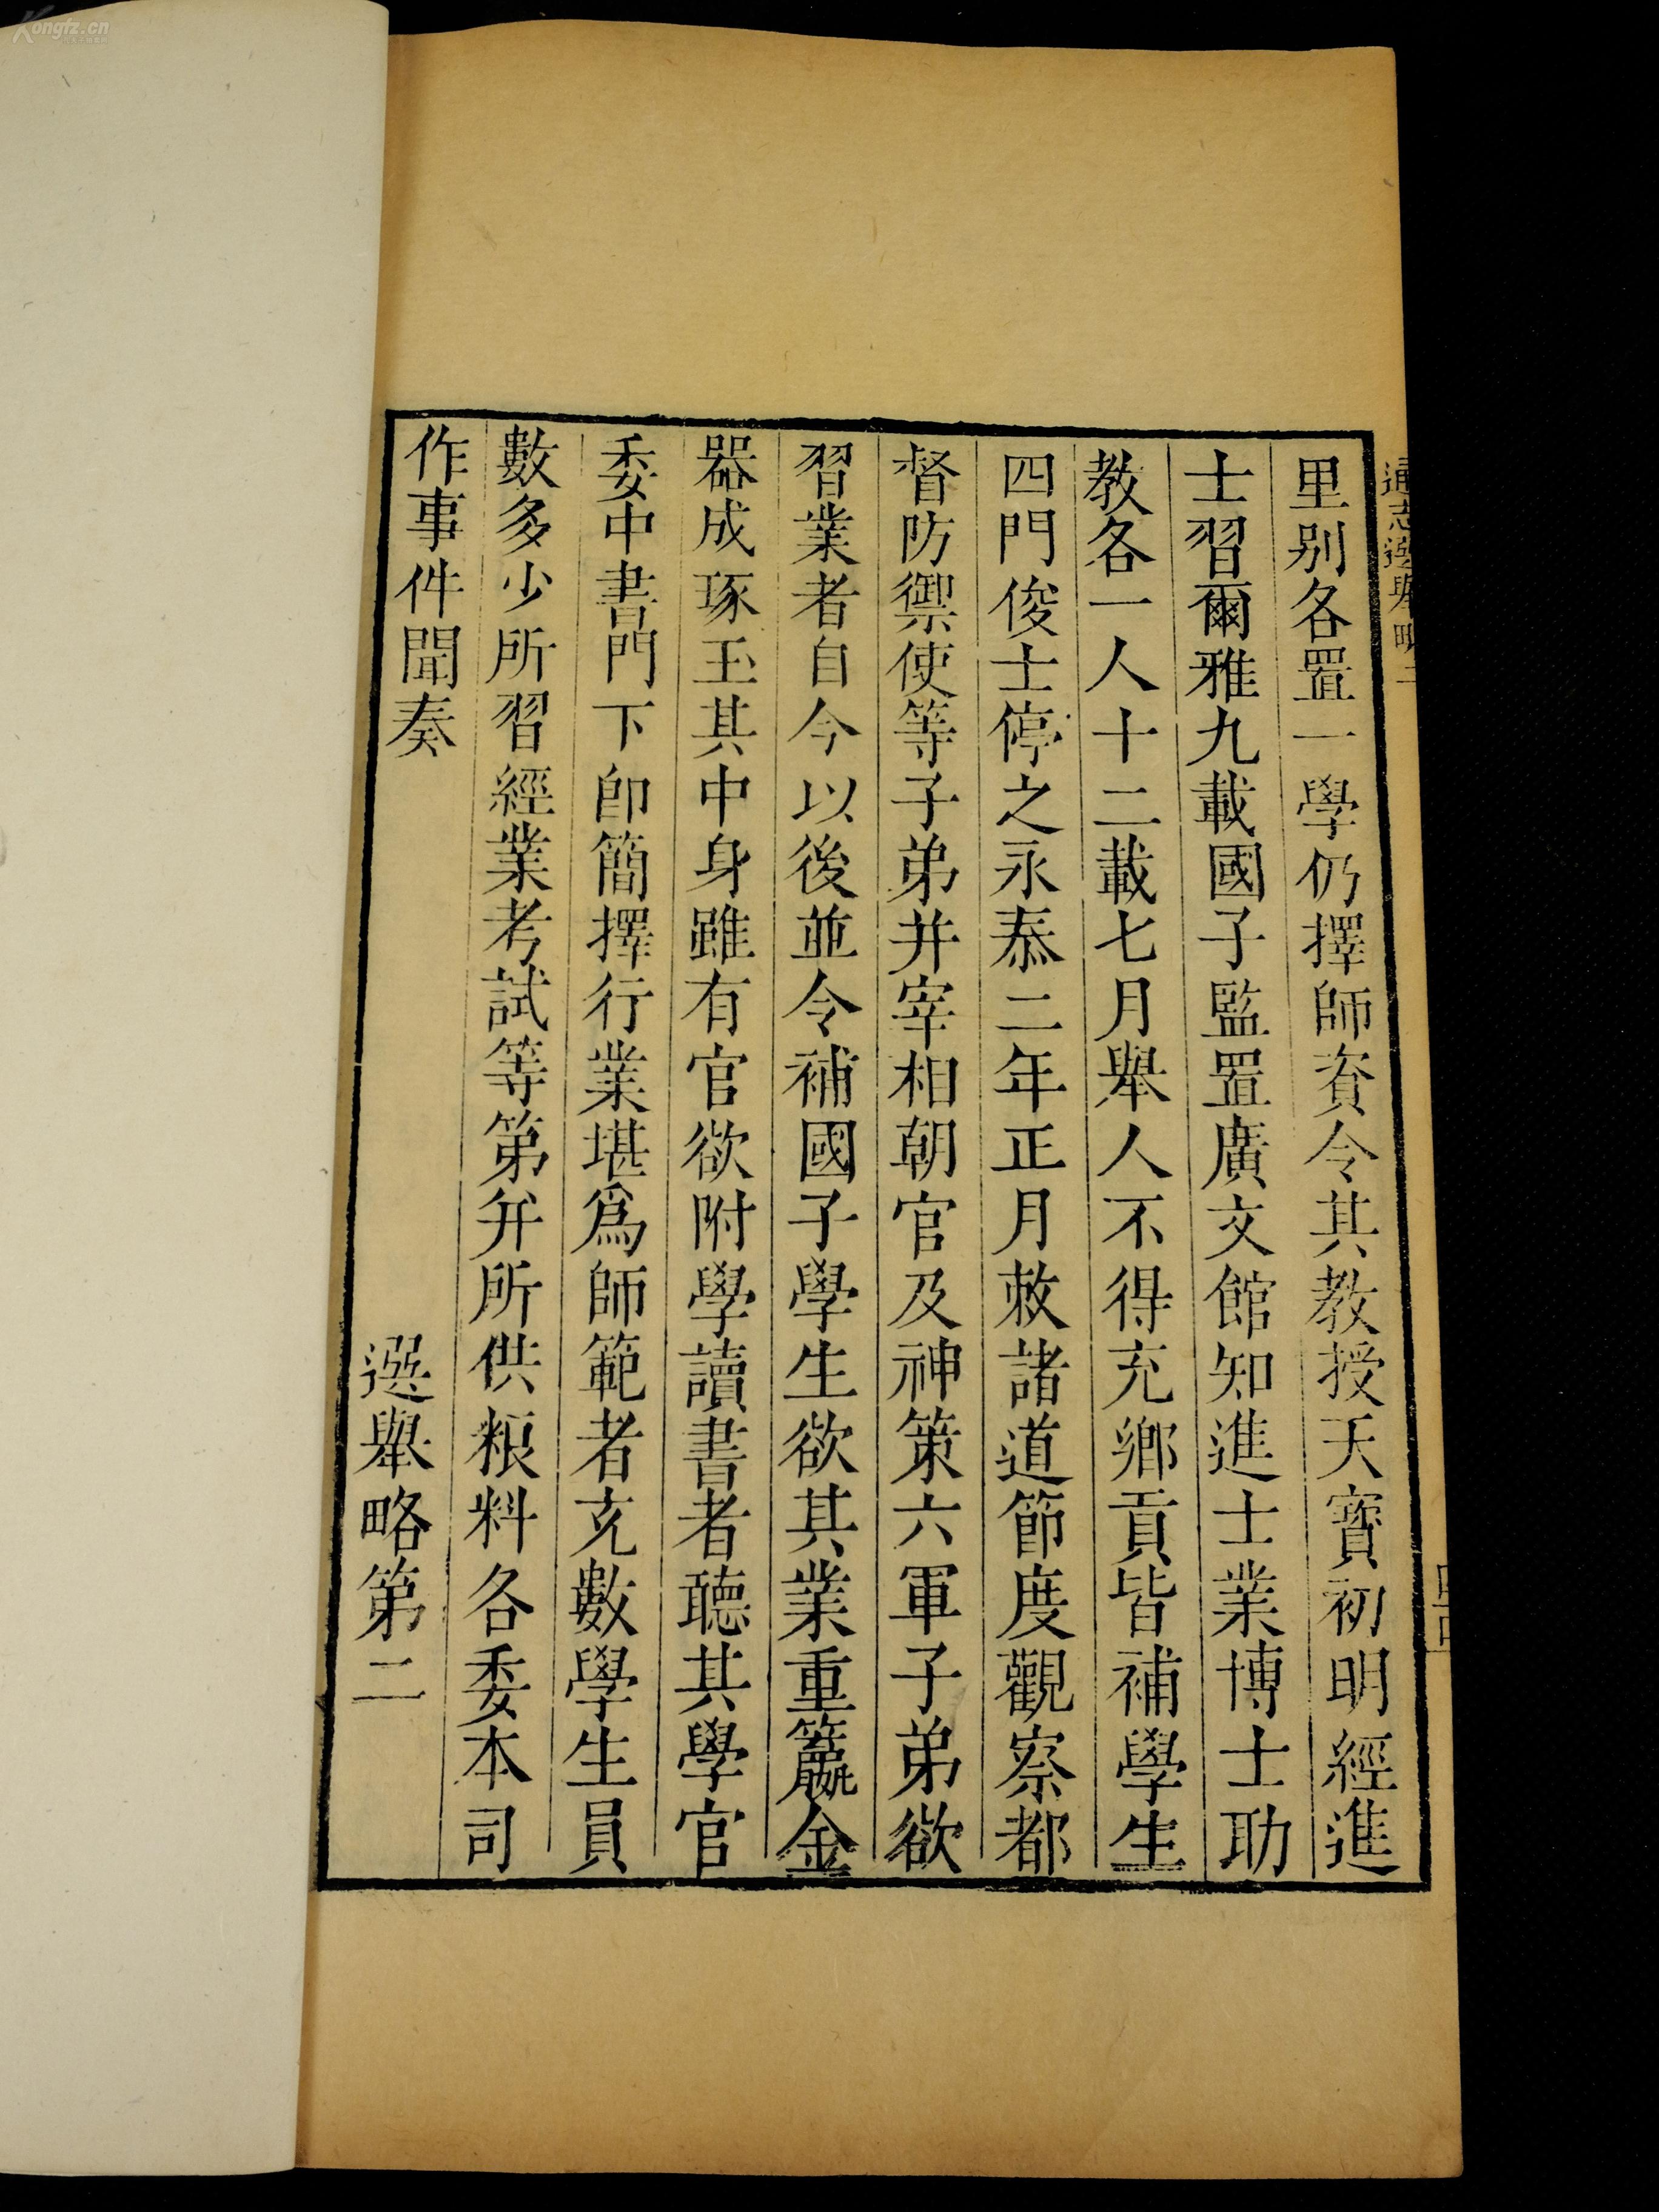 里别各置一學仍擇師資令其教授天寶初明經進
士習爾雅九載國子監置廣文館知進士業博士助
教各一人十二載七月舉人不得充鄉貢皆補學生
四門俊士停之永泰二年正月敕諸道節度觀察都
督防禦使等子弟并宰相朝官及神策六軍子弟欲
習業者自今以後並令補國子學生欲其業重籯金
器成琢玉其中身雖有官欲附學讀書者聽其學官
委中書門下卽簡擇行業堪爲師範者充數學生員
數多少所習經業考試等第并所供粮料各委本司
作事件聞奏
選舉略第二
Kongfz.cn